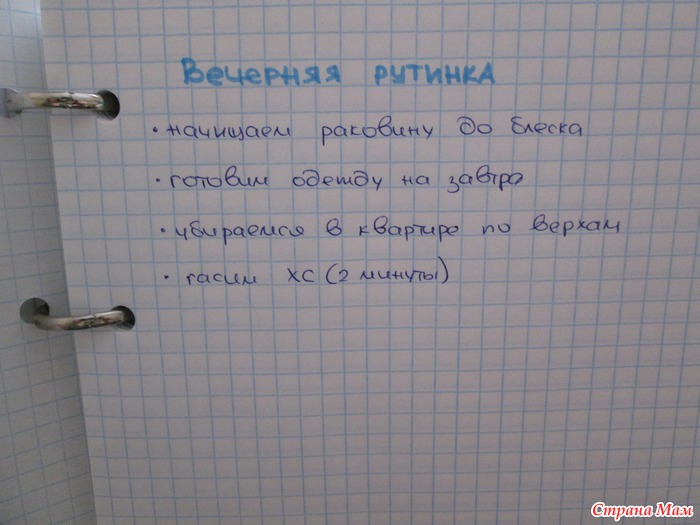 Вечерняя рутинка
• начищаем раковину до блеска
• готовим одежду на завтра
• убираемся в квартире по верхам
• гасим ХС (2 минуты)
Страна Мам